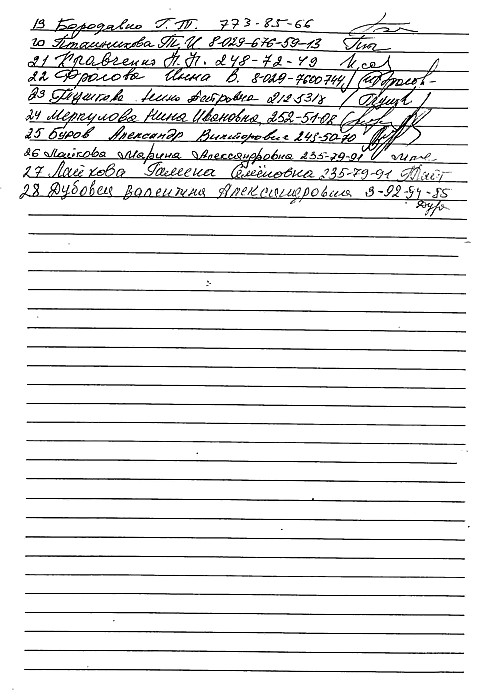 19 Бородавко Г. Т. 773-85-66
20 Пташникова Т. И 8-029-676-59-13
21 Кравченя Н. П. 248-72-49
22 Фролова Инна В. 8-029-7600744
23 Глушкова Нина Петровна 2125318
24 Меркулова Нина Ивановна, 252-51-08
25 Буров Александр Викторович 245-50-70
26 Лайкова Марина Александровна 235-79-91
27 Лайкова Галина Семёновна 235-79-91
28 Дубовец Валентина Александровна 3-92-94-85